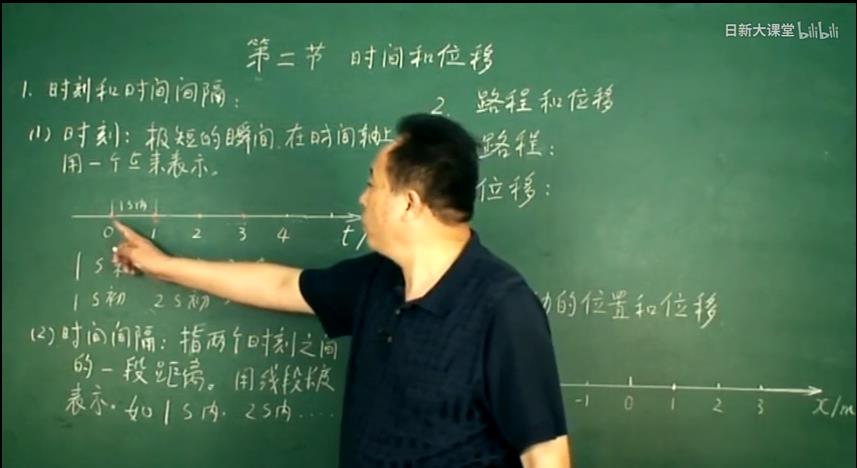 日新大课堂 bilibili
第二节 时间和位移
1. 时刻和时间间隔:
(1) 时刻: 极短的瞬间,在时间轴上
用一个点来表示。
1s内
0 1 2 3 4 t/
1s
1s初 2s初
(2) 时间间隔: 指两个时刻之间
的一段距离。用线段长度
表示。如1s内. 2s内....
2. 路程和位移
路程:
位移:
的位置和位移
-1 0 1 2 3 x/m